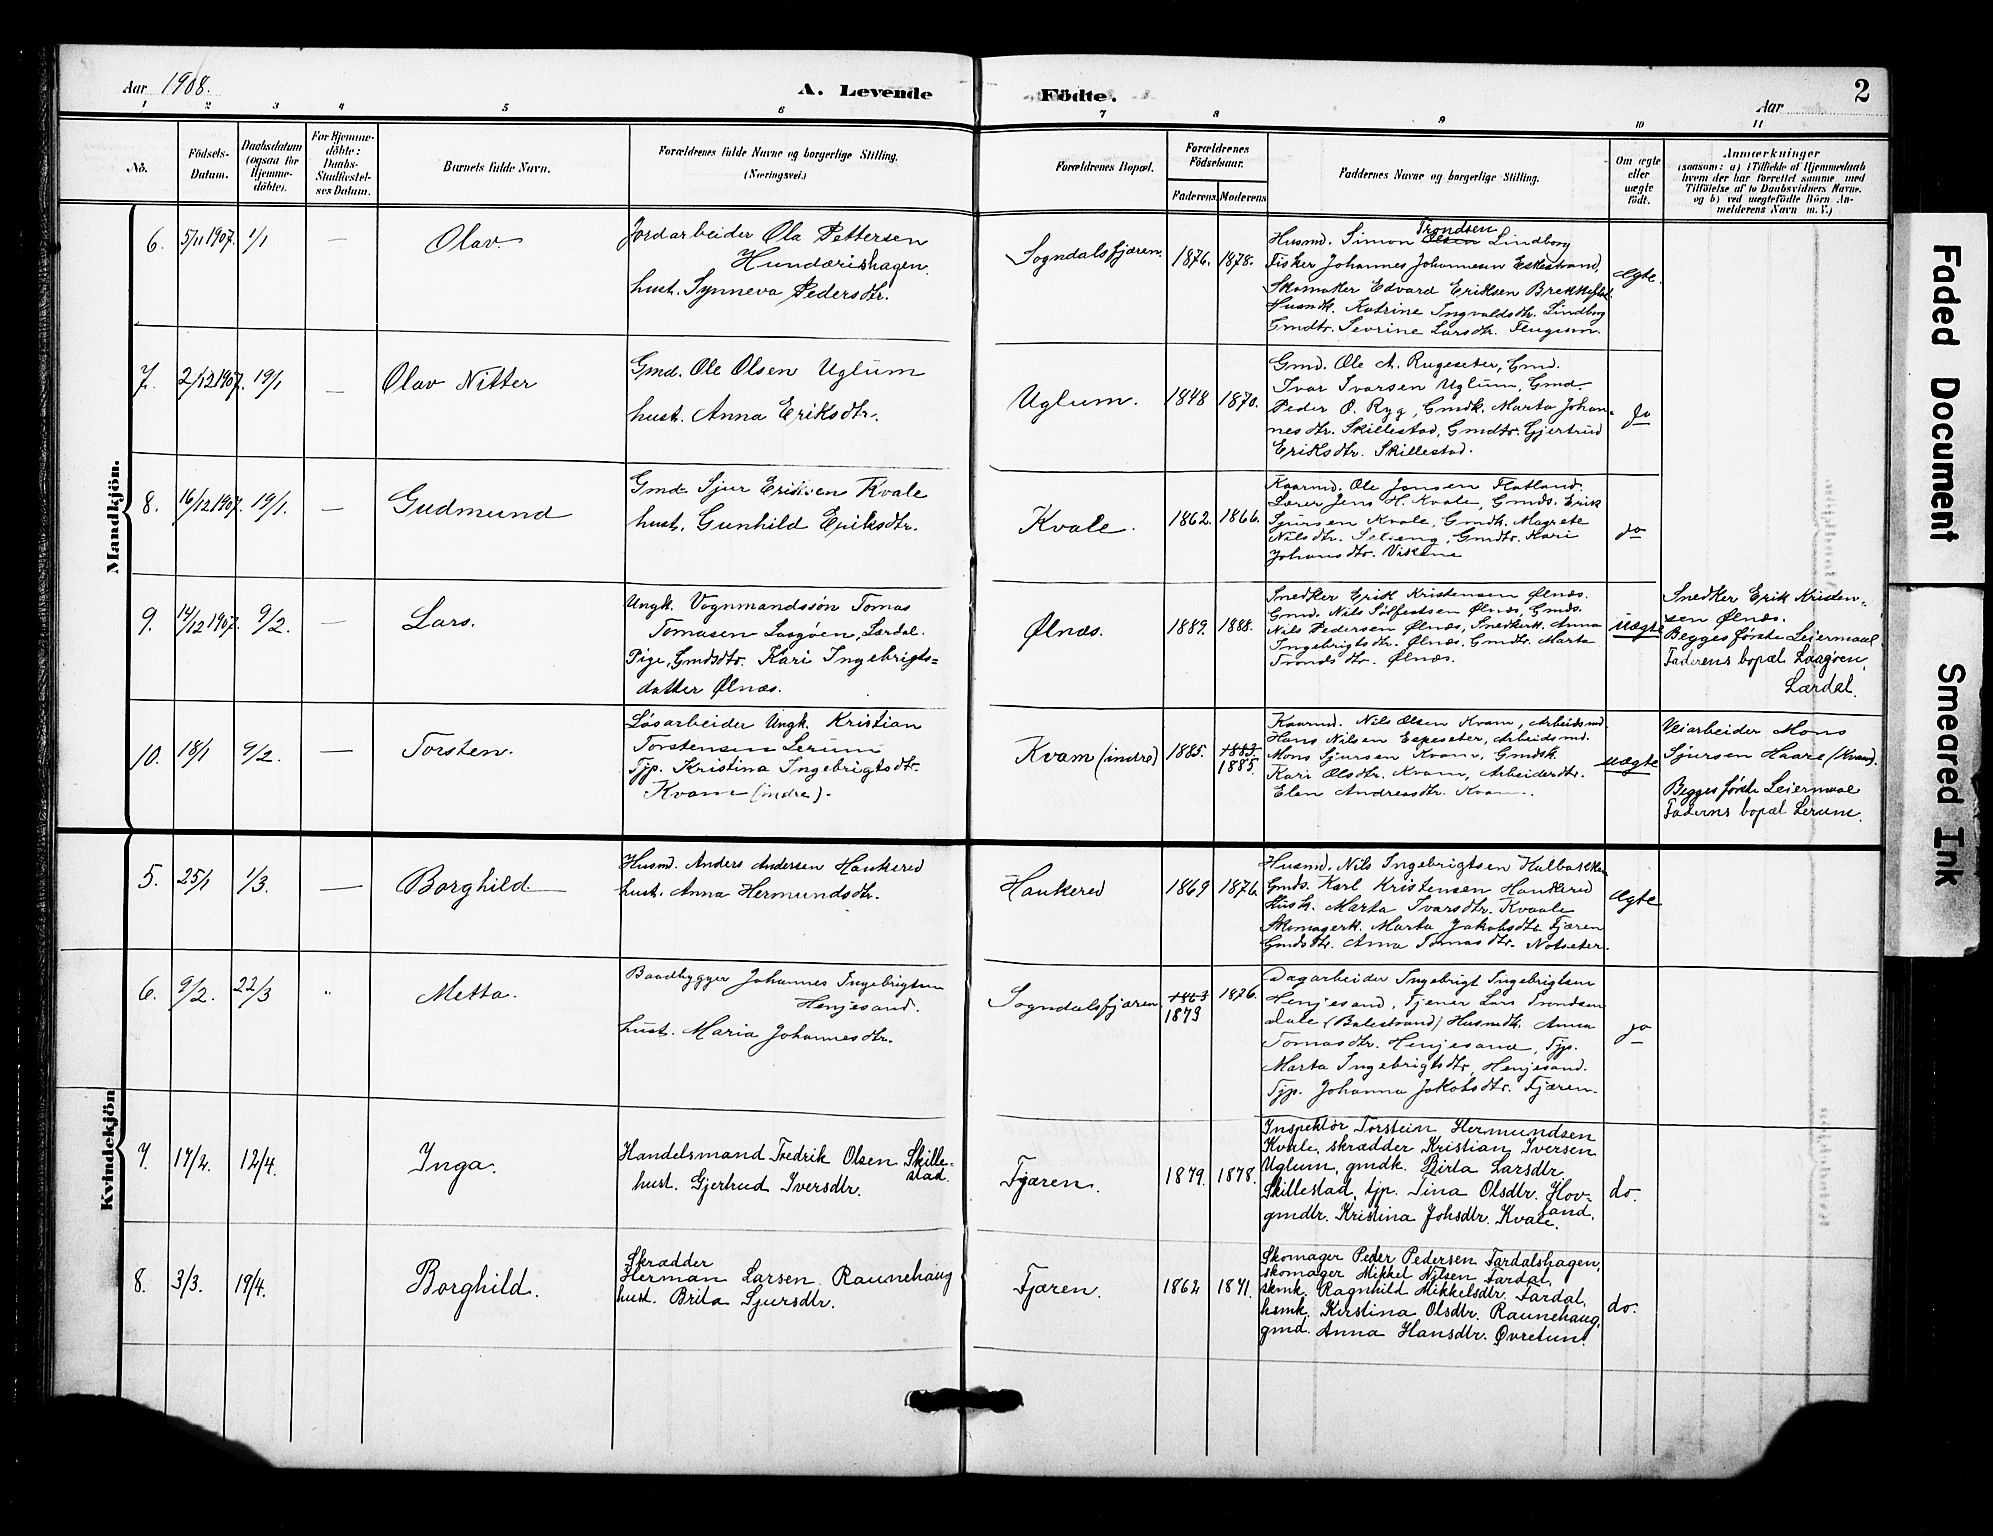 Aar 1908.
A. Levende Födte.
Aar
2
1 2 3 4 5 6 7 8 9 10 11
No.
Födsels-Datum.
Daabsdatum (ogsaa for Hjemme-döbte).
For Hjemme-döbte: Daabs-Stadfæstel-ses Datum.
Barnets fulde Navn.
Forældrenes fulde Navne og borgerlige Stilling. (Næringsvei.)
Forældrenes Bopæl.
Forældrenes Födselsaar.
Faderens.
Moderens.
Faddernes Navne og borgerlige Stilling.
Om ægte eller uægte födt.
Anmærkninger
(saasom: a) i Tilfælde af Hjemmedaab
hvem der har forrettet samme med
Tilföielse af to Daabsvidners Navne.
og b) ved uægtefödte Börn, An-
melderens Navn m. V.)
Mandkjön.
6. 5/11 1907. 1/1 — Olav
Jordarbeider Ola Pettersen
Hundærishagen.
hust. Synneva Pedersdtr.
Sogndalsfjæren. 1876. 1878.
Trondsen
Husmd. Simon Olsen Lindborg
Fisker Johannes Johannesen Eskestrand,
Skomaker Edvard Eriksen
Husmdk. Katrine Ingvaldsdtr. Lindborg
Gmdtr. Sevrine Larsdtr.
Ægte.
7. 2/12 1907. 19/1 — Olav Nitter
Gmd. Ole Olsen Uglum
hust. Anna Eriksdtr.
Uglum. 1848 1870.
Gmd. Ole A. Rugeseter, Gmd.
Ivar Ivarsen Uglum, Gmd.
Peder O. Ryg, Gmdk. Marta Johan-
nesdtr. Skillestad, Gmdtr. Gjertrud
Eriksdtr. Skillestad.
do
8. 16/12 1907. 19/1. — Gudmund
Gmd. Sjur Eriksen Kvale
hust. Gunhild Eriksdtr.
Kvale. 1862. 1866.
Kaarmd. Ole Jonsen Flatland.
Lærer Jens H. Kvale, Gmds. Erik
Sjursen Kvale, Gmdk. Magrete
Nilsdtr. Seleng, Gmdtr. Kari
Johansdtr.
do
9. 14/12 1907. 9/2. — Lars.
Ungk. Vognmandssön Tomas
Tomasen Laagöen, Lærdal.
Pige, Gmdsdtr. Kari Ingebrigts=
datter Ølnæs.
Ølnæs. 1889. 1888.
Snedker Erik Kristensen Ølnæs.
Gmd. Nils Sölfestsen Ølnæs, Gmds.
Nils Pedersen Ølnæs, Snedkerk. Anna
Ingebrigtsdtr. Ølnæs, Gmdtr. Marta
Trondsdtr. Ølnæs.
Uægte
Snedker Erik Kristen-
sen Ølnæs.
Begges første Leiermaal.
Faderens bopæl Laagöen,
Lærdal.
10. 18/1 9/2. — Torsten.
Løsarbeider Ungk. Kristian
Torstensen Lerum
Tjp. Kristina Ingebrigtsdtr.
Kvam (indre).
Kvam (indre) 1885. 1883. 1885.
Kaarmd. Nils Olsen Kvam, Arbeidsmd.
Hans Nilsen Espeseter, Arbeidsmd.
Mons Sjursen Kvam, Gmdsk.
Kari Olsdtr. Kvam, Arbeiderdtr.
Elen Andreasdtr. Kvam.
uægte
Veiarbeider Mons
Sjursen Haare (Kvam).
Begges første Leiermaal
Faderns bopæl Lerum.
Kvindekjön
5. 25/1 1/3. — Borghild
Husmd. Anders Andersen Haukered
hust. Anna Hermundsdtr.
Haukered 1869 1876.
Husmd. Nils Ingebrigtsen Kalbakken
Gmds. Karl Kristensen Haukered
Husk. Marta Ivarsdtr. Kvaale
Skomagerk. Marta Jakobsdtr. Fjæren
Gmdsdtr. Anna Tomasdtr. Notseter.
Ægte
6. 9/2. 22/3 " Metta.
Baadbygger Johannes Ingebrigtsen
Henjesand.
hust. Maria Johannesdtr.
Sogndalsfjæren. 1863 1879 1876.
Dagarbeider Ingebrigt Ingebrigtsen
Henjesand, Tjener Lars Trondsen
Dale (Balestrand) Husmdk. Anna
Tomasdtr. Henjesand, Tjp.
Marta Ingebrigtsdtr, Henjesand.
Tjp. Johanna Jakobsdtr. Fjæren.
do
7. 17/2. 12/4. Inga.
Handelsmand Fredrik Olsen Skille-
stad.
hust. Gjertrud Iversdtr.
Fjæren. 1879. 1878.
Inspektör Torstein Hermundsen
Kvale, skrædder Kristian Iversen
Uglum, gmdk. Birta Larsdtr.
Skillestad, tjp. Tina Olsdtr. Hov-
land.
gmdtr. Kristina Johsdtr. Kvale.
do.
8. 3/3. 19/4. Borghild.
Skrædder
Herman Larsen Raunehaug
hust. Brita Sjursdtr.
Fjæren. 1862 1871.
Skomager Peder Pedersen Fardalshagen,
skomager Mikkel Nilsen Fardal,
skmk. Ragnhild Mikkelsdtr. Fardal,
hsmk. Kirstina Olsdtr. Raunehaug,
gmd. Anna Hansdtr. Øvretun.
do.
Faded Document
Smeared Ink